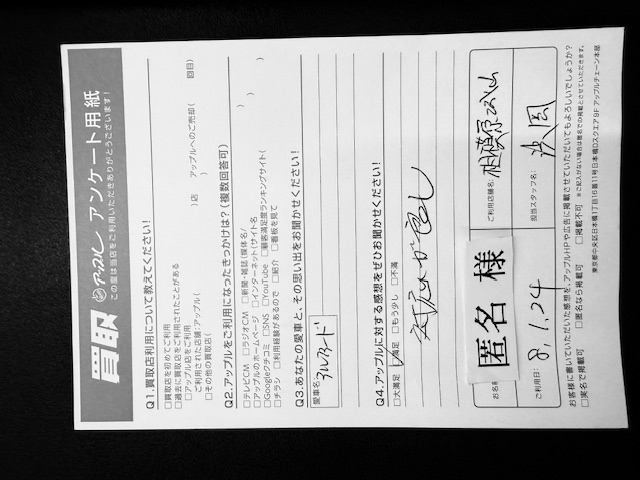 買取 アップル アンケート用紙
この度は当店をご利用いただきありがとうございます!
Q1.買取店利用について教えてください!
□買取店を初めてご利用
□過去に買取店をご利用されたことがある
□アップル店をご利用
ご利用された店舗:アップル( )店 アップルへのご売却( 回目)
□その他の買取店( )
Q2.アップルをご利用になったきっかけは?(複数回答可)
□テレビCM □ラジオCM □新聞・雑誌(媒体名/ )
□アップルのホームページ □インターネット(サイト名 )
□Googleクチコミ □SNS □YouTube □顧客満足度ランキングサイト( )
□チラシ □利用経験があるので □紹介 □看板を見て
Q3.あなたの愛車と、その思い出をお聞かせください!
愛車名
アルファード
Q4.アップルに対する感想をぜひお聞かせください!
□大満足 □満足 □もう少し □不満
対応が良し
お名前 匿名 様
ご利用店舗名: 相模原
ご利用日: 8.1.24
担当スタッフ名:
お客様に書いていただいた感想を、アップルHPや広告に掲載させていただいてもよろしいでしょうか?
□実名で掲載可 □匿名なら掲載可 □掲載不可 ※ご記入がない場合は匿名での掲載とさせていただきます。
東京都中央区日本橋1丁目16番11号日本橋Dスクエア9F アップルチェーン本部